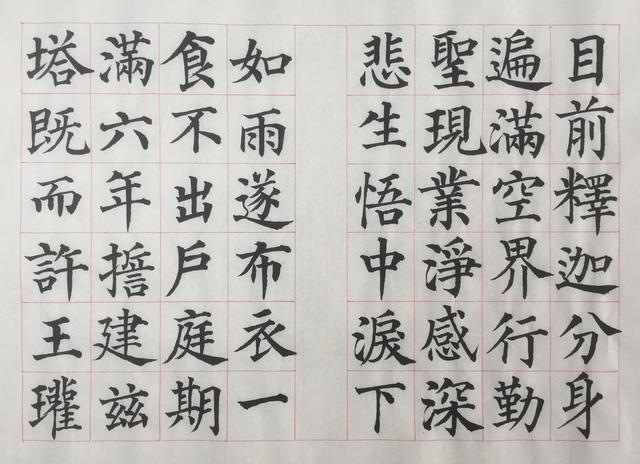 目前釋迦分身
遍滿空界行勤
聖現業淨感深
悲生悟中淚下
如雨遂布衣一
食不出戶庭期
滿六年擔建茲
塔既而許王瓘